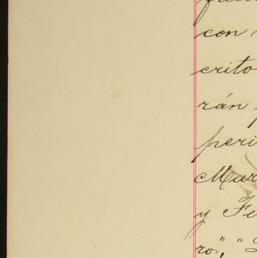 con
crito
rán
peri
Mar
y Fe
ro", "